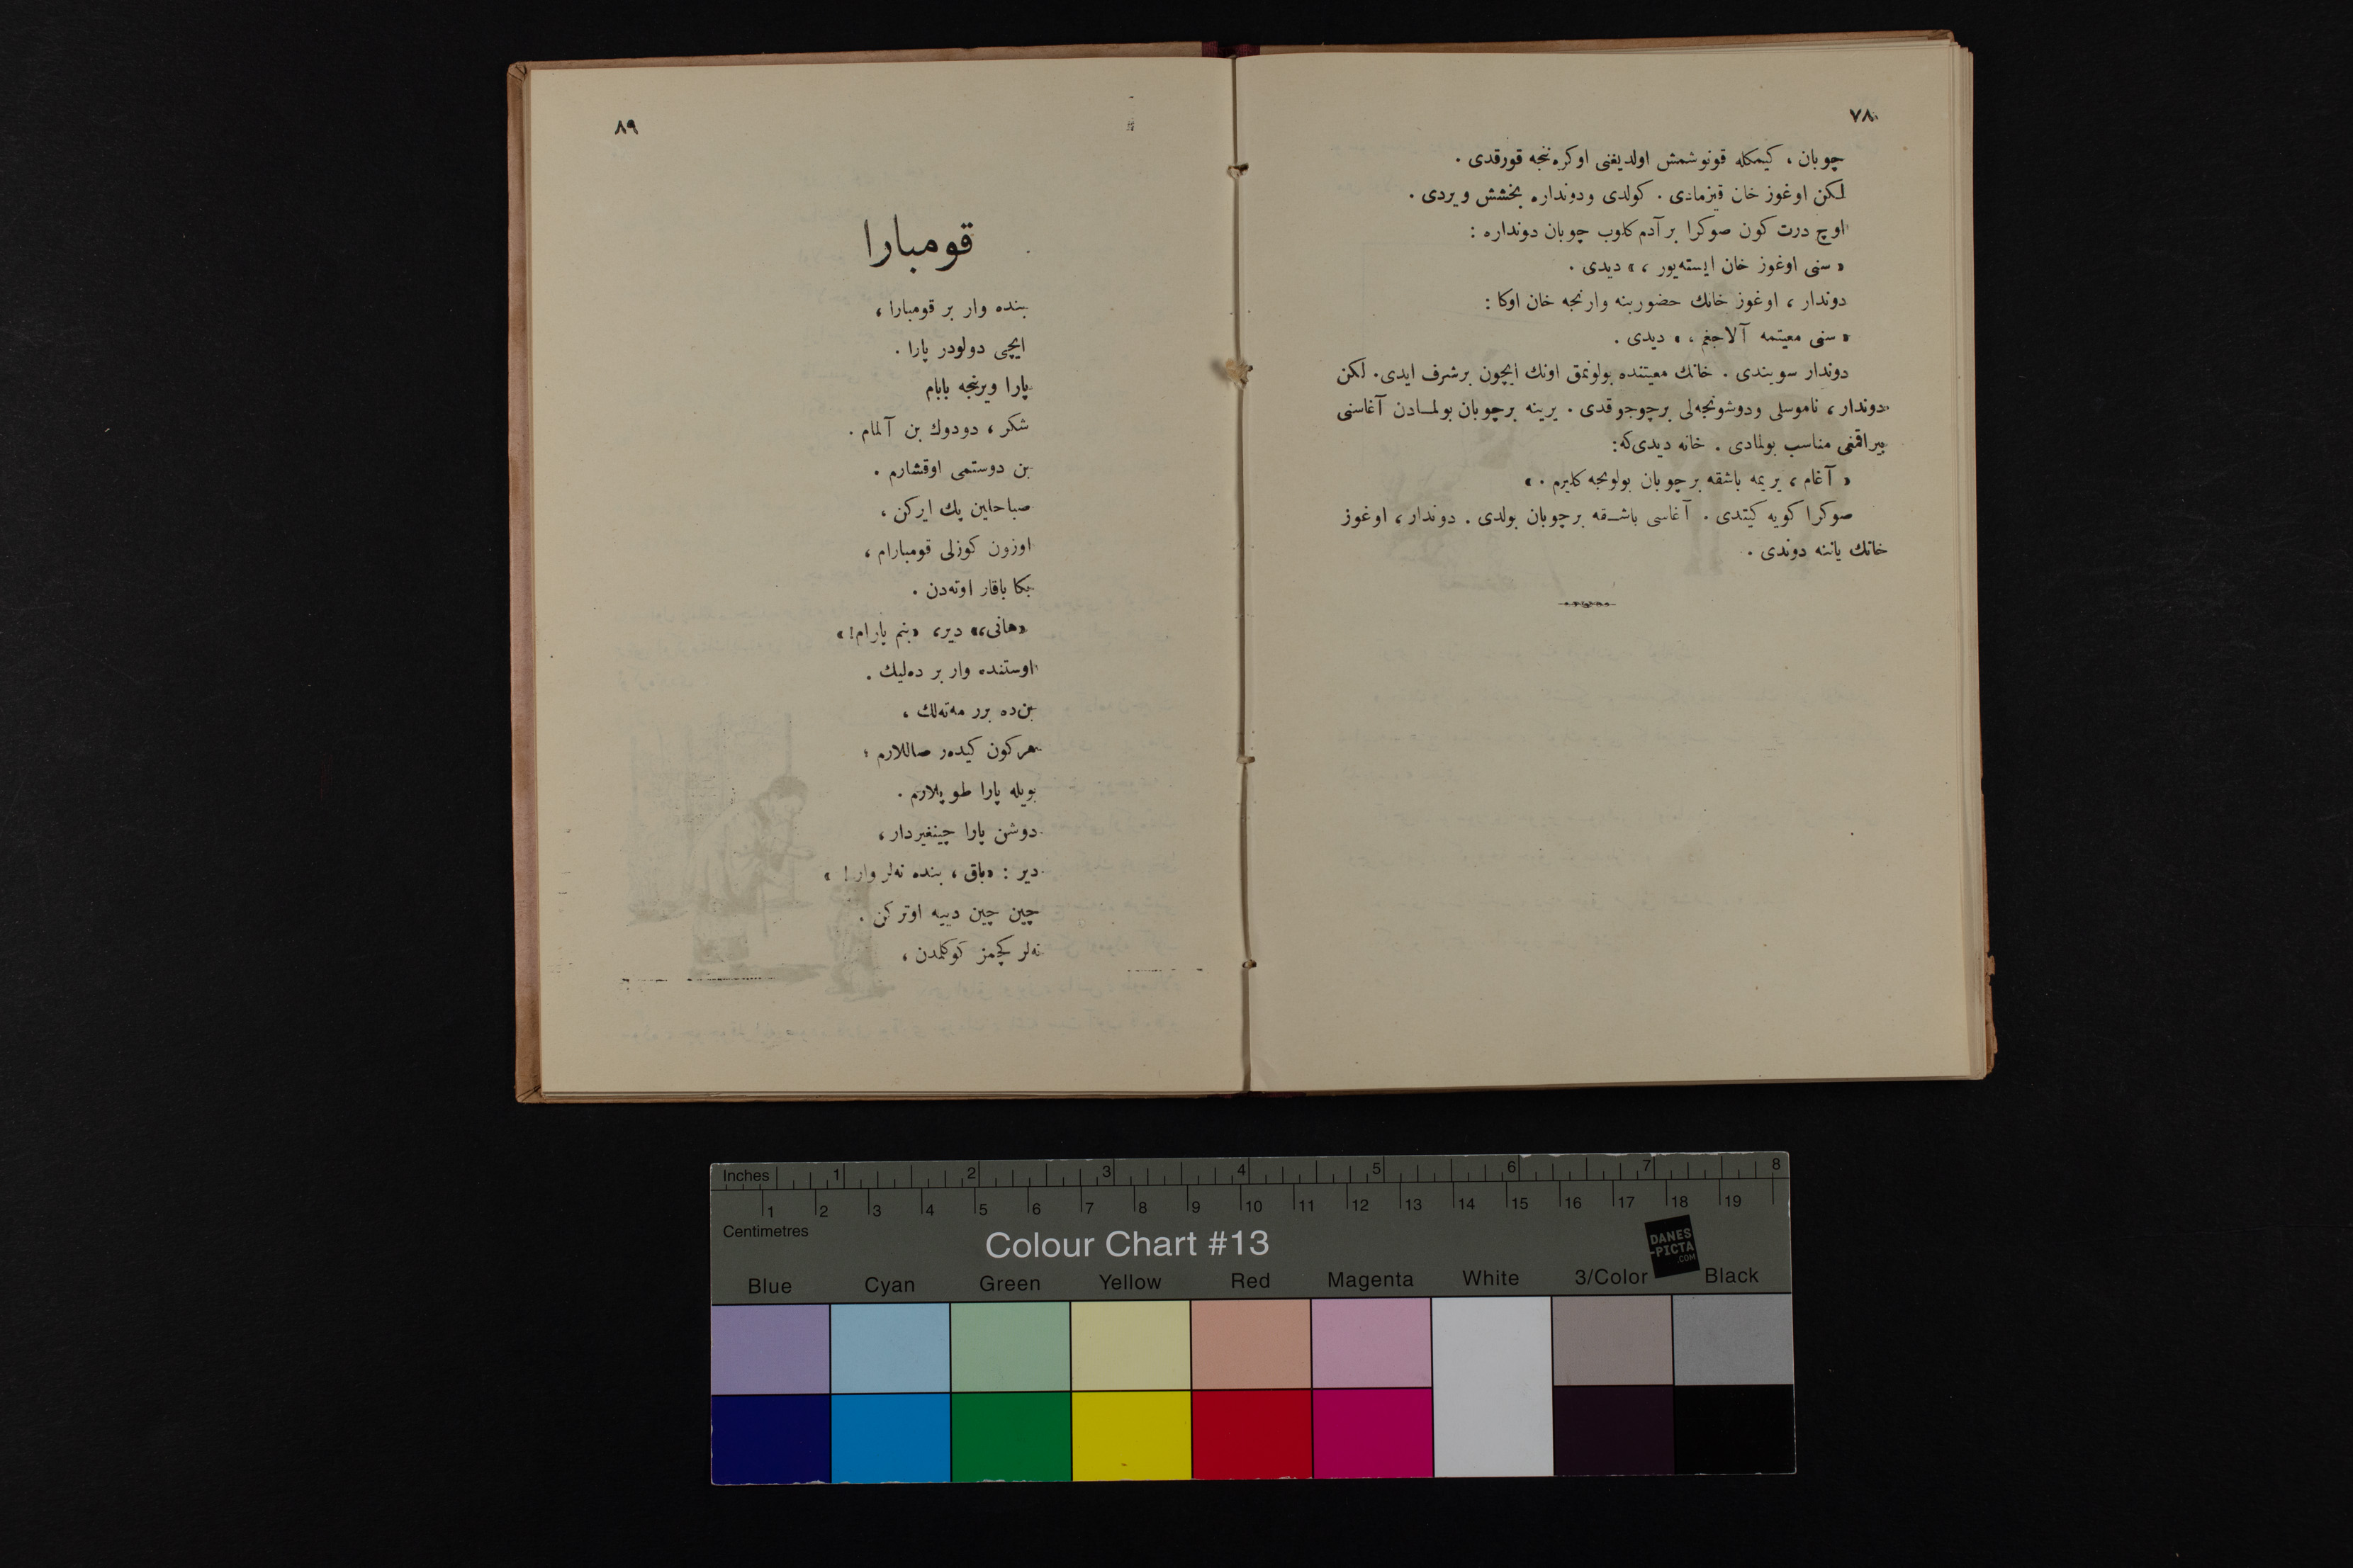 ٧٨
چوبان ، كيمكله قونوشمش اولديغنى اوكره‌ننجه قورقدى .
لكن اوغوز خان قيزمادى . كولدى ودونداره بخشش ويردى .
اوچ درت كون صوكرا بر آدم كلوب چوبان دونداره :
« سنى اوغوز خان ايسته‌يور ، » ديدى .
دوندار ، اوغوز خانك حضورينه وارنجه خان اوكا :
« سنى معيتمه آلاجغم ، » ديدى .
دوندار سويندى . خانك معيتنده بولونمق اونك ايچون برشرف ايدى . لكن
دوندار ، ناموسلى ودوشونجه‌لى برچوجوقدى . يرينه برچوبان بولمـادن آغاسنى
بيراقمغى مناسب بولمادى . خانه ديدى‌كه :
« آغام ، يريمه باشقه برچوبان بولونجه كليرم . »
صوكرا كويه كيتدى . آغاسى باشـقه برچوبان بولدى . دوندار ، اوغوز
خانك ياننه دوندى .
٨٩
قومبارا
بنده وار بر قومبارا ،
ايچى دولودر پارا .
پارا ويرنجه بابام
شكر ، دودوك بن آلمام .
بن دوستمى اوقشارم .
صباحلين پك ايركن ،
اوزون كوزلى قومبارام ،
بكا باقار اوته‌دن .
«هانى،» دير، «بنم پارام!»
اوستنده وار بر ده‌ليك .
بن‌ده برر مه‌ته‌لك ،
هركون كيده‌ر صاللارم ؛
بويله پارا طوپلارم .
دوشن پارا چينغيردار ،
دير : «باق ، بنده نه‌لر وار ! »
چين چين دييه اوتركن .
نه‌لر كچمز كوكلمدن ،
Inches 1 2 3 4 5 6 7 8
1 2 3 4 5 6 7 8 9 10 11 12 13 14 15 16 17 18 19
Centimetres
Colour Chart #13
DANES
-PICTA
.COM
Blue Cyan Green Yellow Red Magenta White 3/Color Black